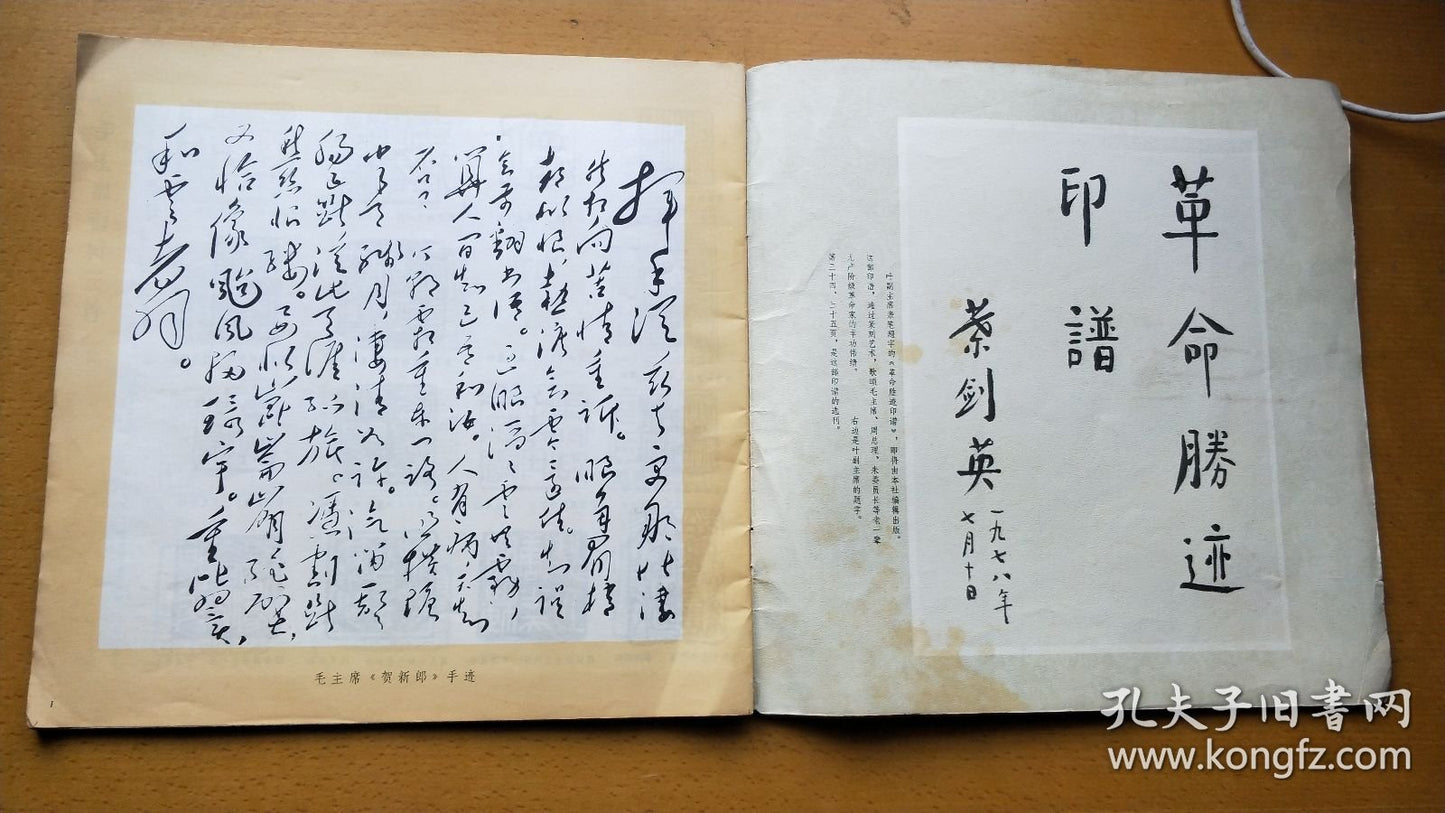 挥手从兹去更那堪凄
然相向苦情重诉。眼角眉梢
都似恨,热泪欲零还住。知误
会前翻书语。过眼滔滔云共雾,
算人间知己吾和汝。人有病,天知
否?今朝霜重东门路。照横塘
半天残月,凄清如许。汽笛一声
肠已断,从此天涯孤旅。凭割断
愁丝恨缕。要似崑崙崩绝壁,
又恰像颱风扫寰宇。重比翼,
和云翥。
毛主席《贺新郎》手迹
1
革命勝迹
印譜
葉剑英
一九七八年
七月十日
叶副主席亲笔题字的《革命胜迹印谱》,即将由本社编辑出版。
这部印谱,通过篆刻艺术,歌颂毛主席、周总理、朱委员长等老一辈
无产阶级革命家的丰功伟绩。 右边是叶副主席的题字。
第二十四、二十五页,是这部印谱的选刊。
孔夫子旧书网
www.kongfz.com